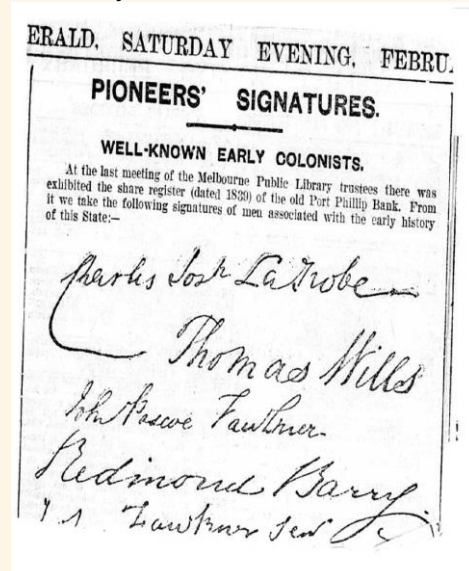 ERALD, SATURDAY EVENING, FEBRU
PIONEERS' SIGNATURES.
WELL-KNOWN EARLY COLONISTS.
At the last meeting of the Melbourne Public Library trustees there was
exhibited the share register (dated 1839) of the old Port Phillip Bank. From
it we take the following signatures of men associated with the early history
of this State:—
Charles Josh LaTrobe
Thomas Wills
John Pascoe Fawkner.
Redmond Barry.
Fawkner Sen